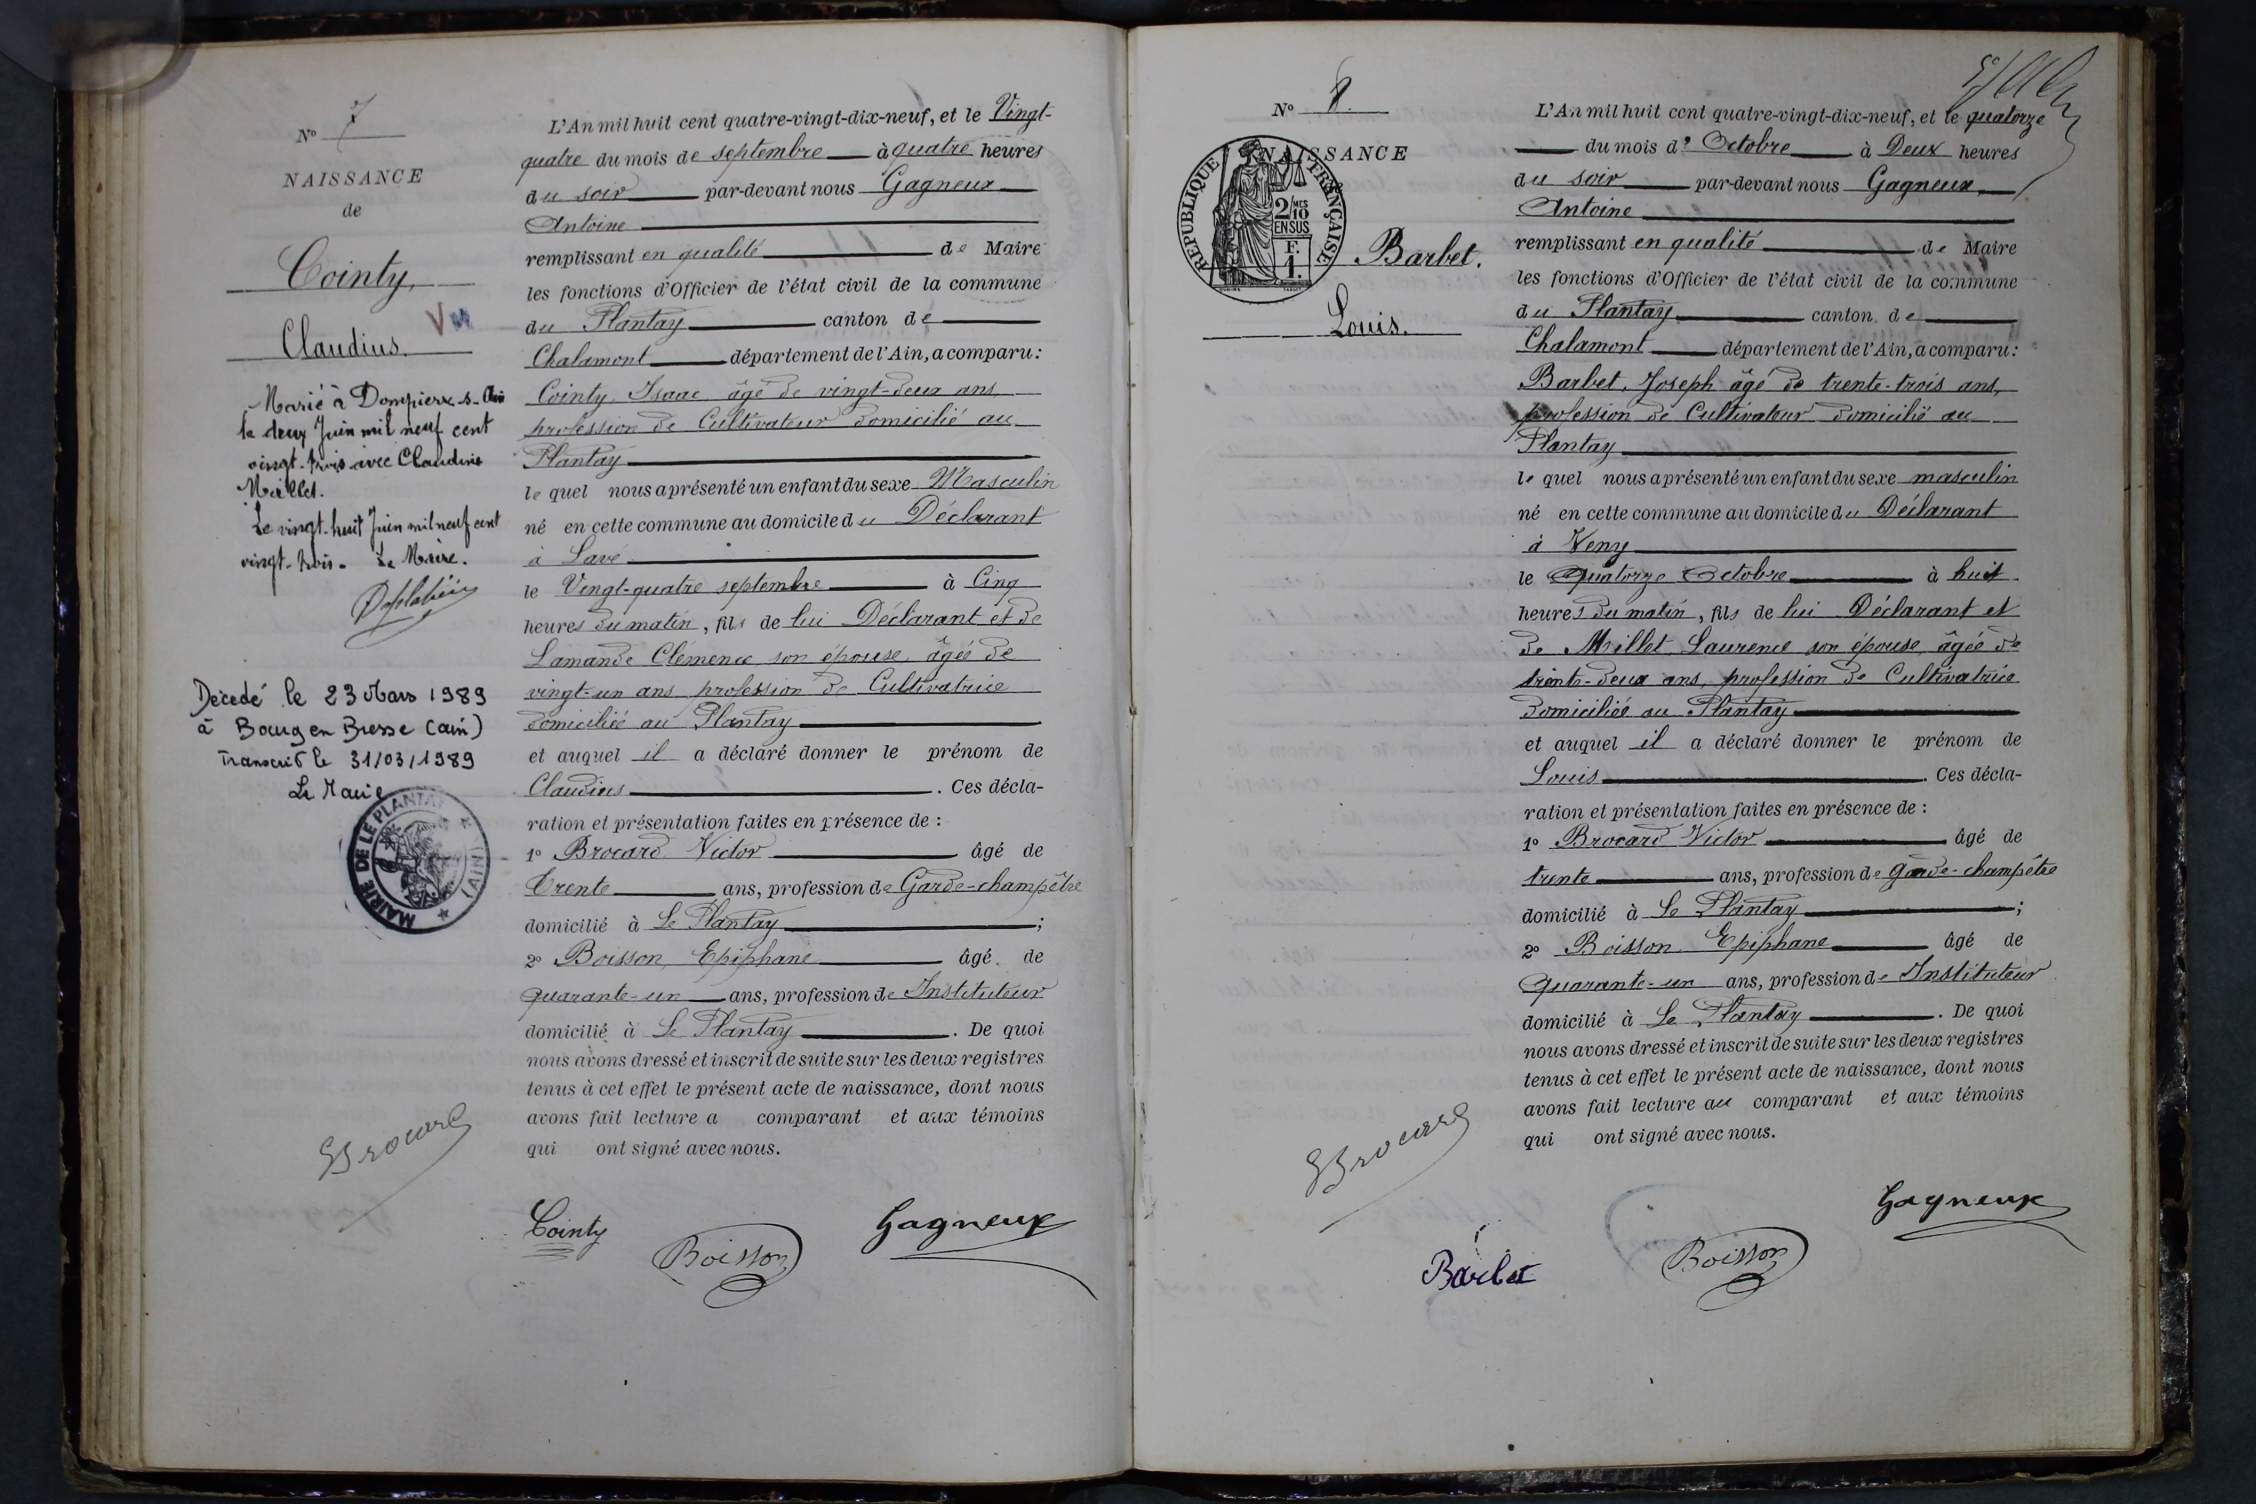 Nº 7
NAISSANCE
de
Cointy,
Claudius.
Vu
Marié à Dompierre-s-Ain
le deux Juin mil neuf cent
vingt-trois avec Claudine
Millet.
Le vingt-huit Juin mil neuf cent
vingt-trois. Le Maire.
Décédé le 23 Mars 1989
à Bourg en Bresse (ain)
Transcrit le 31/03/1989
Le Maire
MAIRIE DE LE PLANTAY (AIN)
L'An mil huit cent quatre-vingt-dix-neuf, et le Vingt-
quatre du mois de septembre à quatre heures
du soir par-devant nous Gagneux
Antoine
remplissant en qualité de Maire
les fonctions d'Officier de l'état civil de la commune
du Plantay canton de
Chalamont département de l'Ain, a comparu :
Cointy, Isaac âgé de vingt-deux ans,
profession de Cultivateur domicilié au
Plantay
le quel nous a présenté un enfant du sexe Masculin
né en cette commune au domicile du Déclarant
à Lavé
le Vingt-quatre septembre à Cinq
heures du matin, fils de lui Déclarant et de
Lamande Clémence son épouse, âgée de
vingt-un ans, profession de Cultivatrice
domiciliée au Plantay
et auquel il a déclaré donner le prénom de
Claudius . Ces décla-
ration et présentation faites en présence de :
1º Brocard Victor âgé de
Trente ans, profession de Garde-champêtre
domicilié à Le Plantay ;
2º Boisson, Epiphane âgé de
quarante-un ans, profession de Instituteur
domicilié à Le Plantay . De quoi
nous avons dressé et inscrit de suite sur les deux registres
tenus à cet effet le présent acte de naissance, dont nous
avons fait lecture a comparant et aux témoins
qui ont signé avec nous.
Brocard
Cointy
Boisson
Gagneux
Nº 8.
NAISSANCE
RÉPUBLIQUE FRANÇAISE
2/10 MES
EN SUS
F.
1.
Barbet.
Louis.
L'An mil huit cent quatre-vingt-dix-neuf, et le quatorze
du mois d' Octobre à Deux heures
du soir par-devant nous Gagneux
Antoine
remplissant en qualité de Maire
les fonctions d'Officier de l'état civil de la commune
du Plantay canton de
Chalamont département de l'Ain, a comparu :
Barbet, Joseph âgé de trente-trois ans,
profession de Cultivateur domicilié au
Plantay
le quel nous a présenté un enfant du sexe masculin
né en cette commune au domicile du Déclarant
à Veny
le Quatorze Octobre à huit
heures du matin, fils de lui Déclarant et
de Millet Laurence son épouse, âgée de
trente-deux ans, profession de Cultivatrice
domiciliée au Plantay
et auquel il a déclaré donner le prénom de
Louis . Ces décla-
ration et présentation faites en présence de :
1º Brocard Victor âgé de
trente ans, profession de garde-champêtre
domicilié à Le Plantay ;
2º Boisson Epiphane âgé de
Quarante-un ans, profession de Instituteur
domicilié à Le Plantay . De quoi
nous avons dressé et inscrit de suite sur les deux registres
tenus à cet effet le présent acte de naissance, dont nous
avons fait lecture au comparant et aux témoins
qui ont signé avec nous.
Brocard
Barbet
Boisson
Gagneux